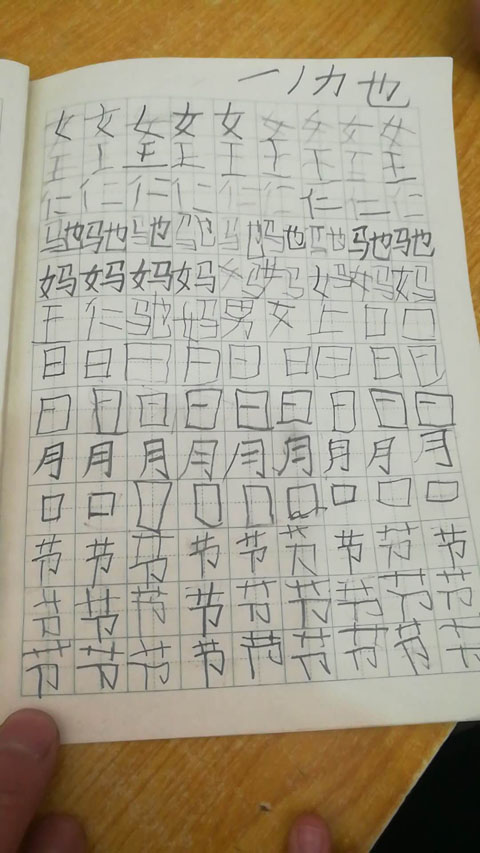 一丿力也
女女女女女女女女女
王王王王王王王王王
仁仁仁仁仁仁仁仁仁
驰驰驰驰驰驰驰驰驰
妈妈妈妈妈妈妈妈妈
王仁驰妈男女上口口
日日日日日日日日日
日日日日日日日日日
月月月月月月月月月
口口口口口口口口口
节节节节节节节节节
节节节节节节节节节
节节节节节节节节节